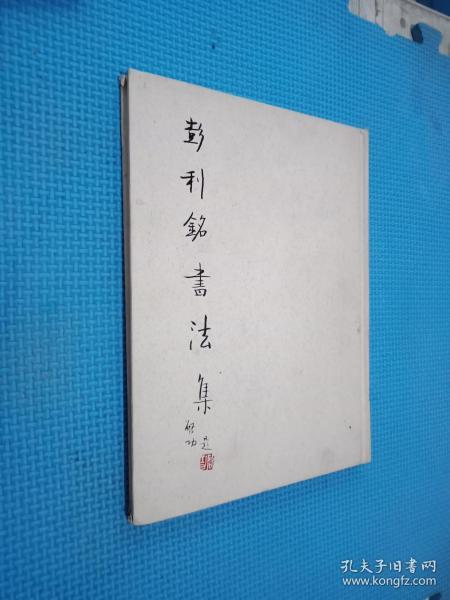 彭利銘書法集
啓功题
孔夫子旧书网
www.kongfz.com